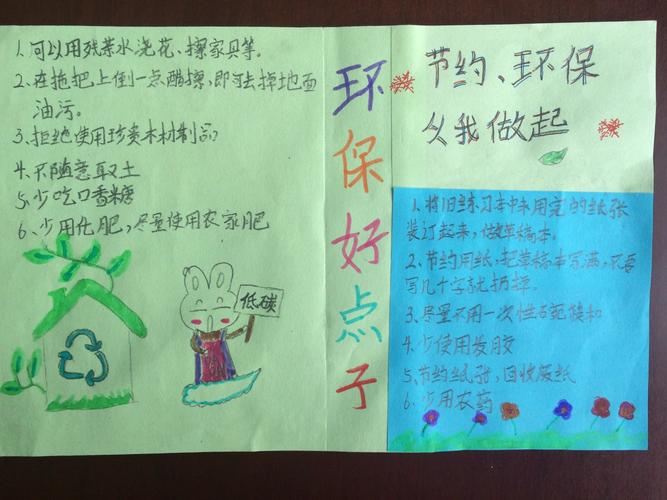 1.可以用残茶水浇花、擦家具等。
2.在拖把上倒一点醋擦,即可去掉地面
油污。
3.拒绝使用珍贵木材制品
4.不随意取土
5.少吃口香糖
6.少用化肥,尽量使用农家肥
低碳
环保好点子
节约、环保
从我做起
1.将旧练习本中未用完的纸张
装订起来,做草稿本。
2.节约用纸,把草稿本写满,不要
写几十字就扔掉。
3.尽量不用一次性
4.少使用发胶
5.节约纸张,回收废纸
6.少用农药